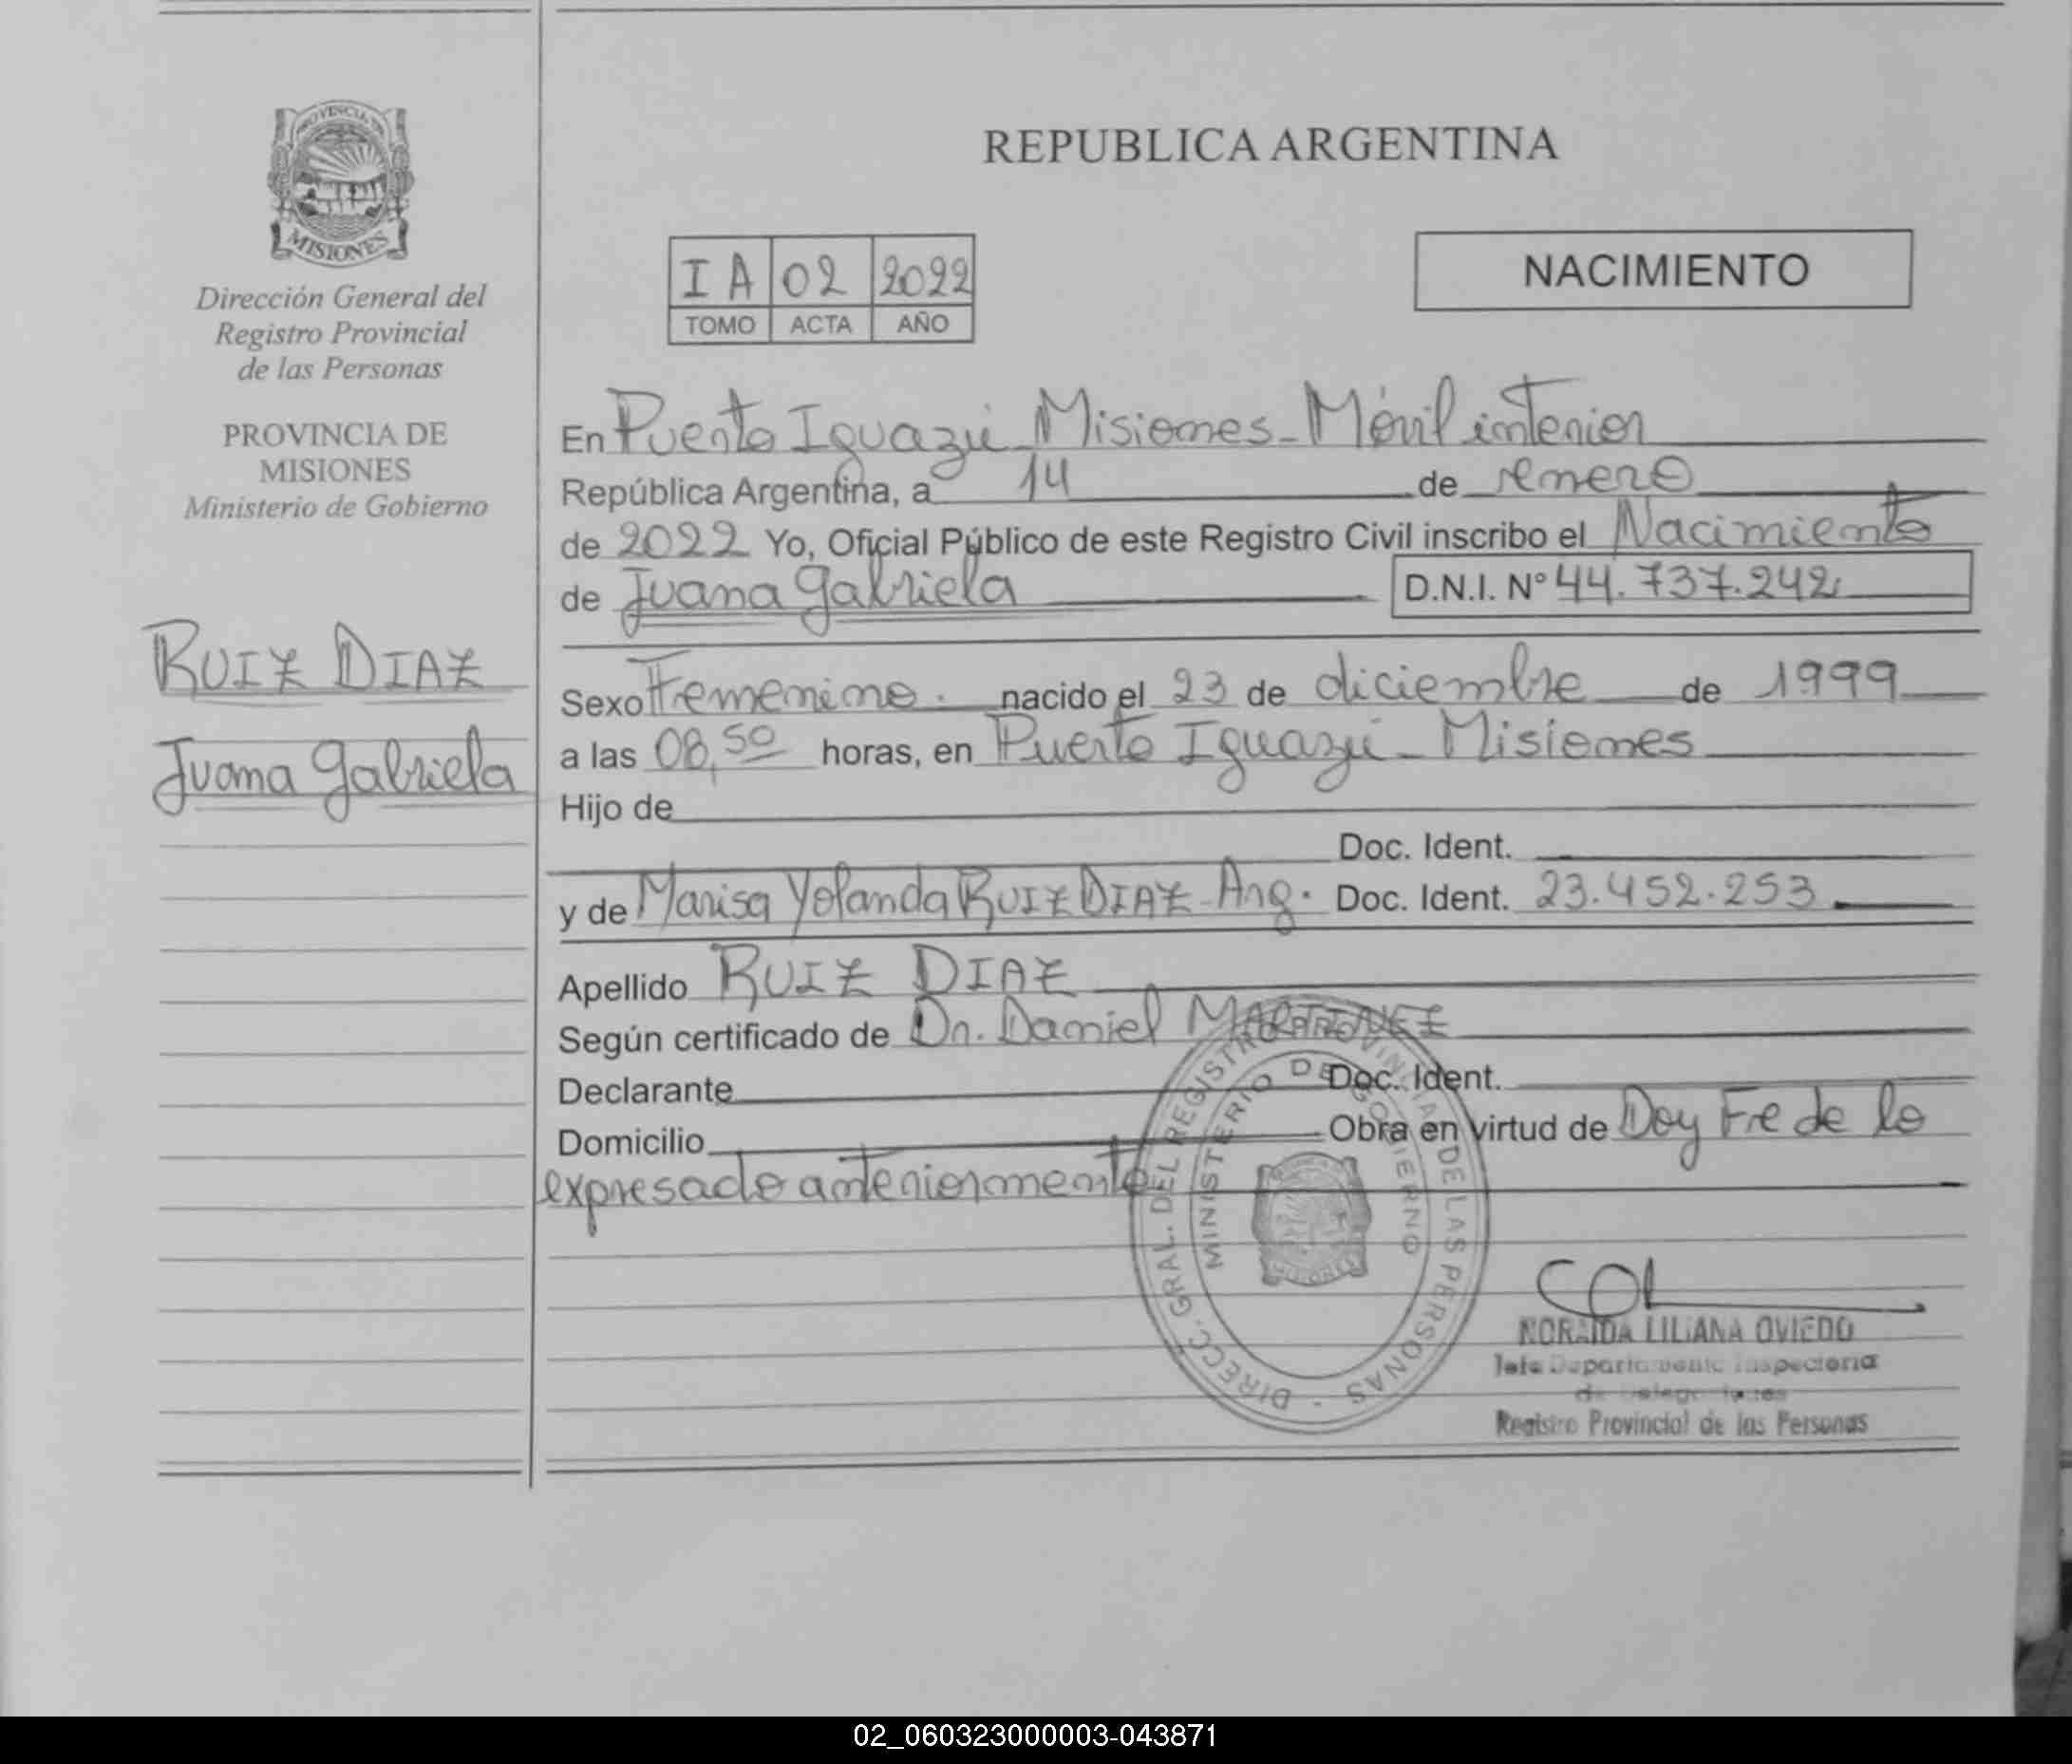 PROVINCIA DE
MISIONES
Dirección General del
Registro Provincial
de las Personas
PROVINCIA DE
MISIONES
Ministerio de Gobierno
RUIZ DIAZ
Juana Gabriela
REPUBLICA ARGENTINA
I A 02 2022
TOMO ACTA AÑO
NACIMIENTO
En Puerto Iguazú Misiones - Móvil interior
República Argentina, a 14 de enero
de 2022 Yo, Oficial Público de este Registro Civil inscribo el Nacimiento
de Juana Gabriela D.N.I. Nº 44.737.242
Sexo Femenino. nacido el 23 de diciembre de 1999
a las 08,50 horas, en Puerto Iguazú - Misiones
Hijo de
Doc. Ident.
y de Marisa Yolanda RUIZ DIAZ - Arg. Doc. Ident. 23.452.253
Apellido RUIZ DIAZ
Según certificado de Dr. Daniel MARTINEZ
Declarante Doc. Ident.
Domicilio Obra en virtud de Doy Fe de lo
expresado anteriormente
DIRECC. GRAL. DEL REGISTRO PROVINCIAL DE LAS PERSONAS -
MINISTERIO DE GOBIERNO
MISIONES
NORAIDA LILIANA OVIEDO
Jefe Departamento Inspectoria
de Delegaciones
Registro Provincial de las Personas
02_060323000003-043871